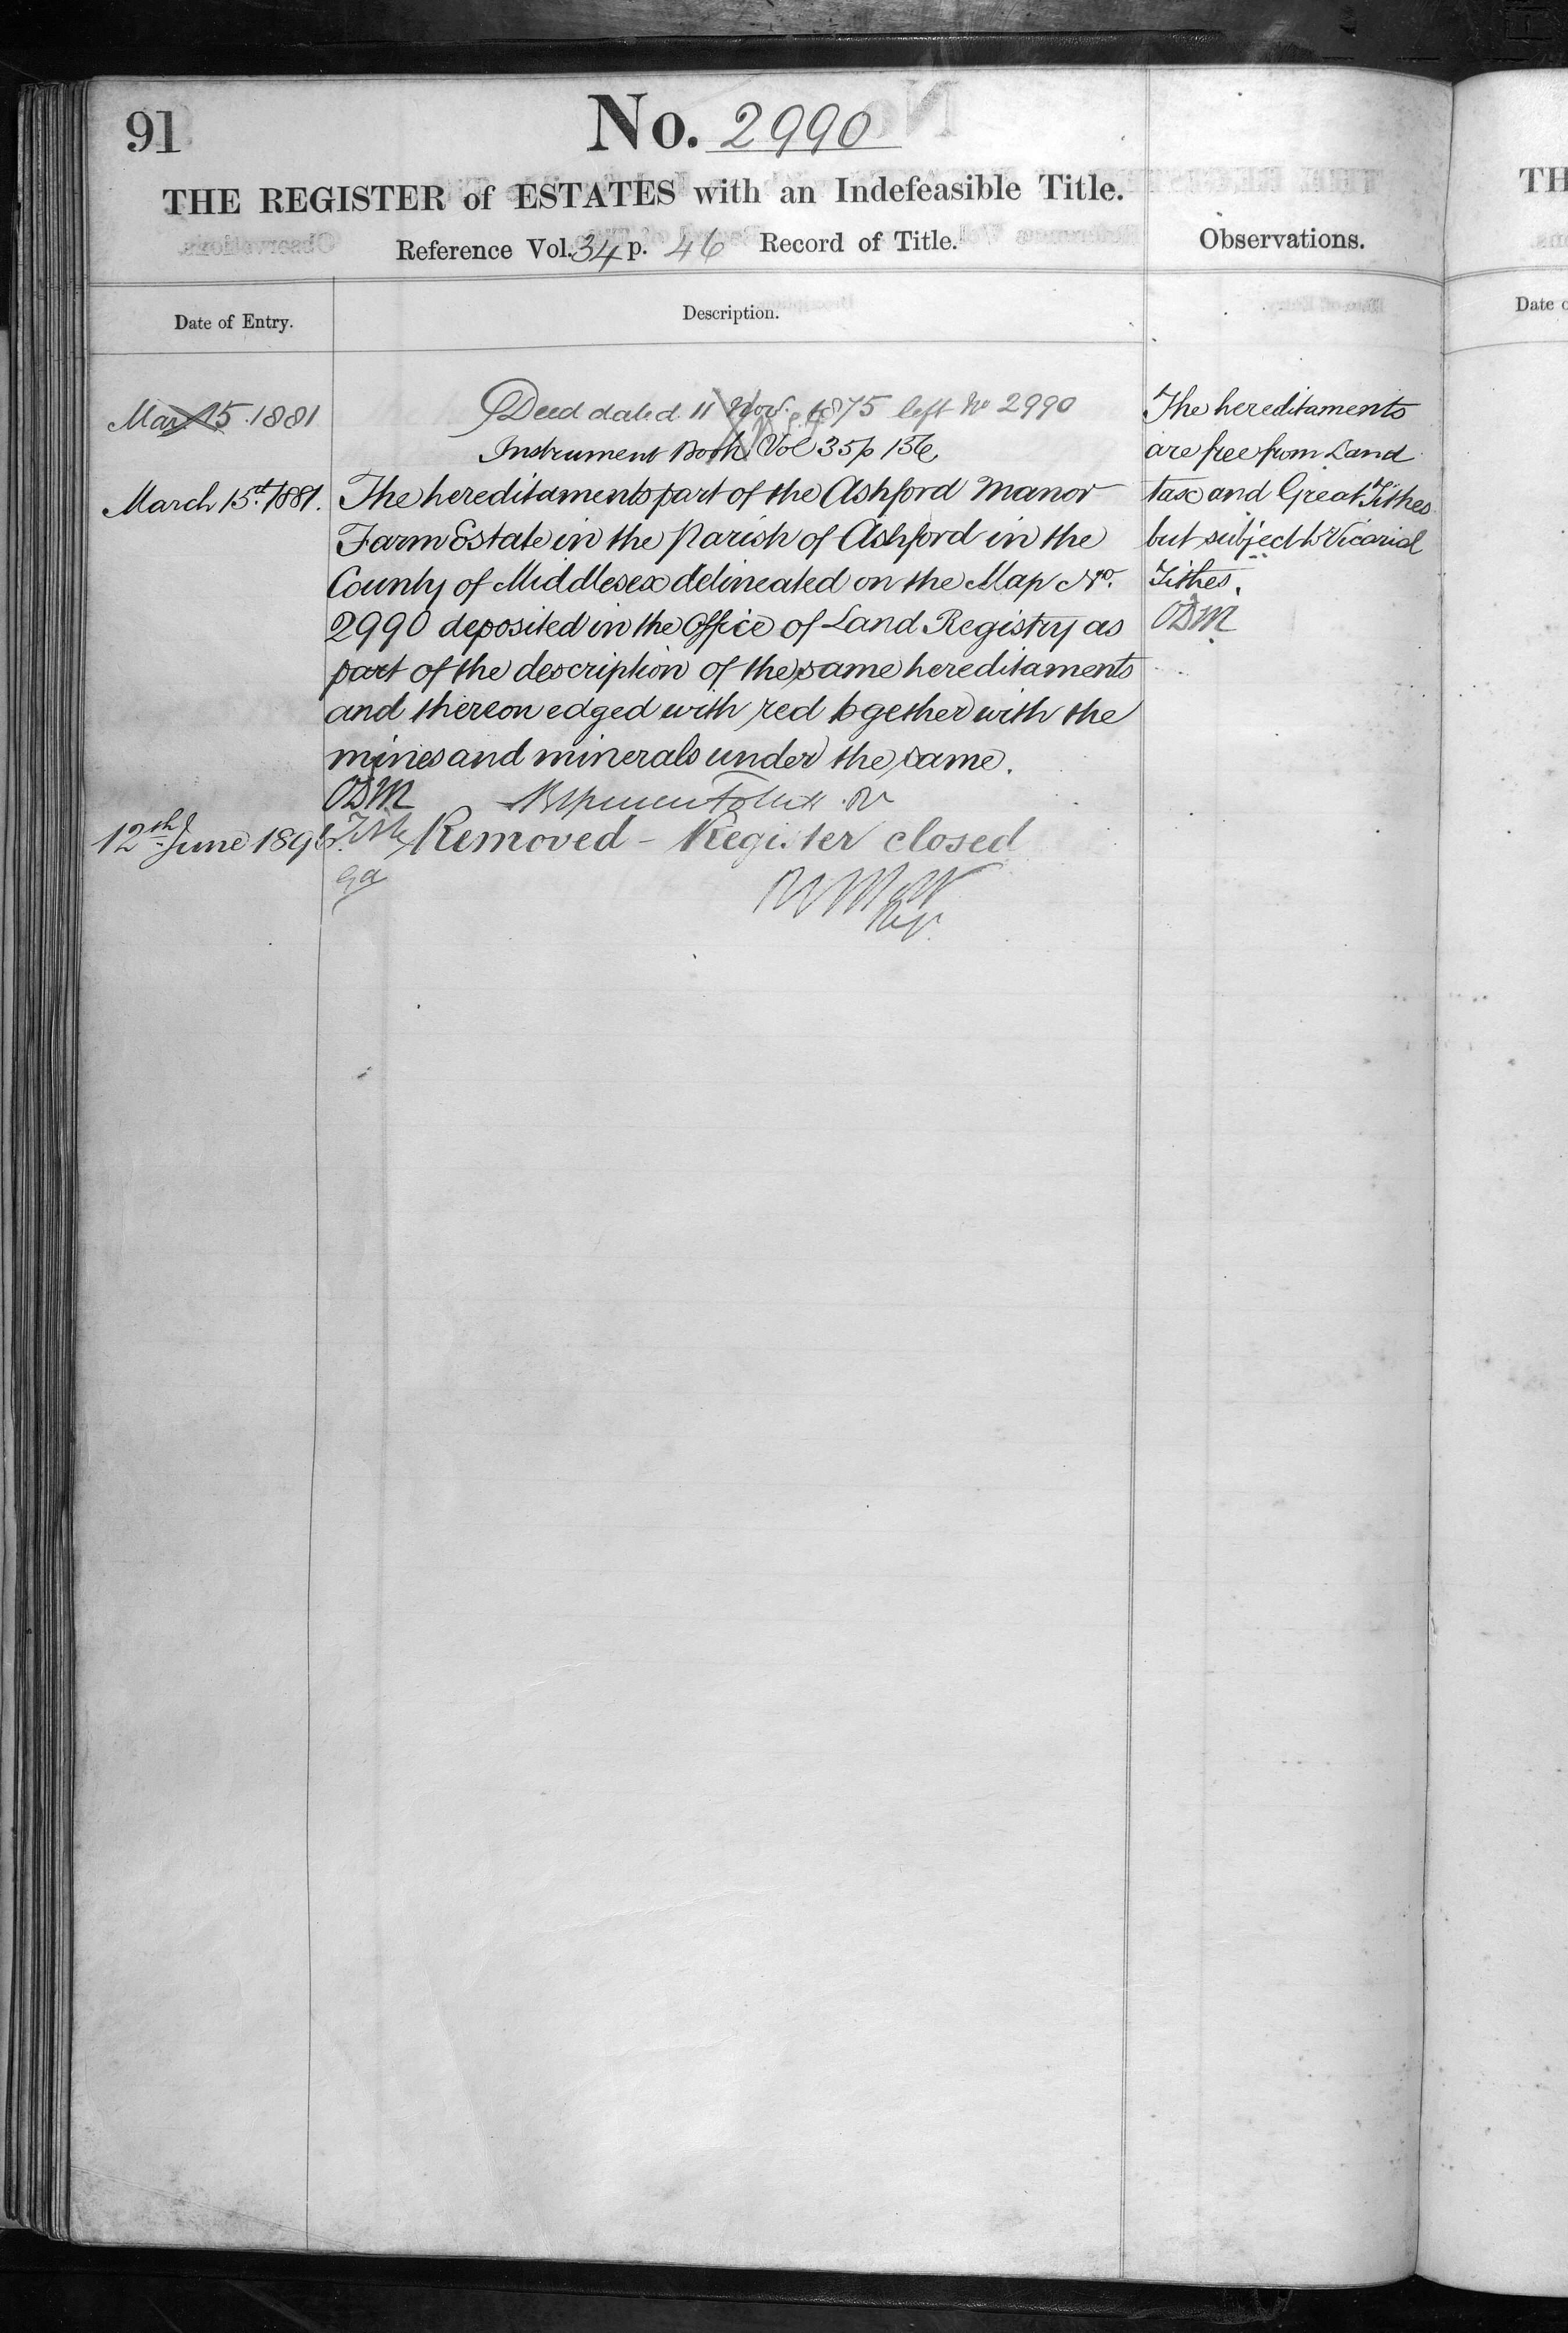 91
No. 2990
THE REGISTER of ESTATES with an Indefeasible Title.
Reference Vol. 34 p. 46 Record of Title.
Observations.
Date of Entry.
Description.
Mar 15. 1881
Deed dated 11 Novr. 1875 left No 2990
Instrument Book Vol 35 p 156
March 15th 1881.
The hereditaments part of the Ashford Manor
Farm Estate in the Parish of Ashford in the
County of Middlesex delineated on the Map No.
2990 deposited in the Office of Land Registry as
part of the description of the same hereditaments
and thereon edged with red together with the
mines and minerals under the same.
ODM
12th June 189
Title Removed – Register closed
The hereditaments
are free from Land
tax and Great Tithes
but subject to Vicarial
Tithes.
ODM
TH
Date o